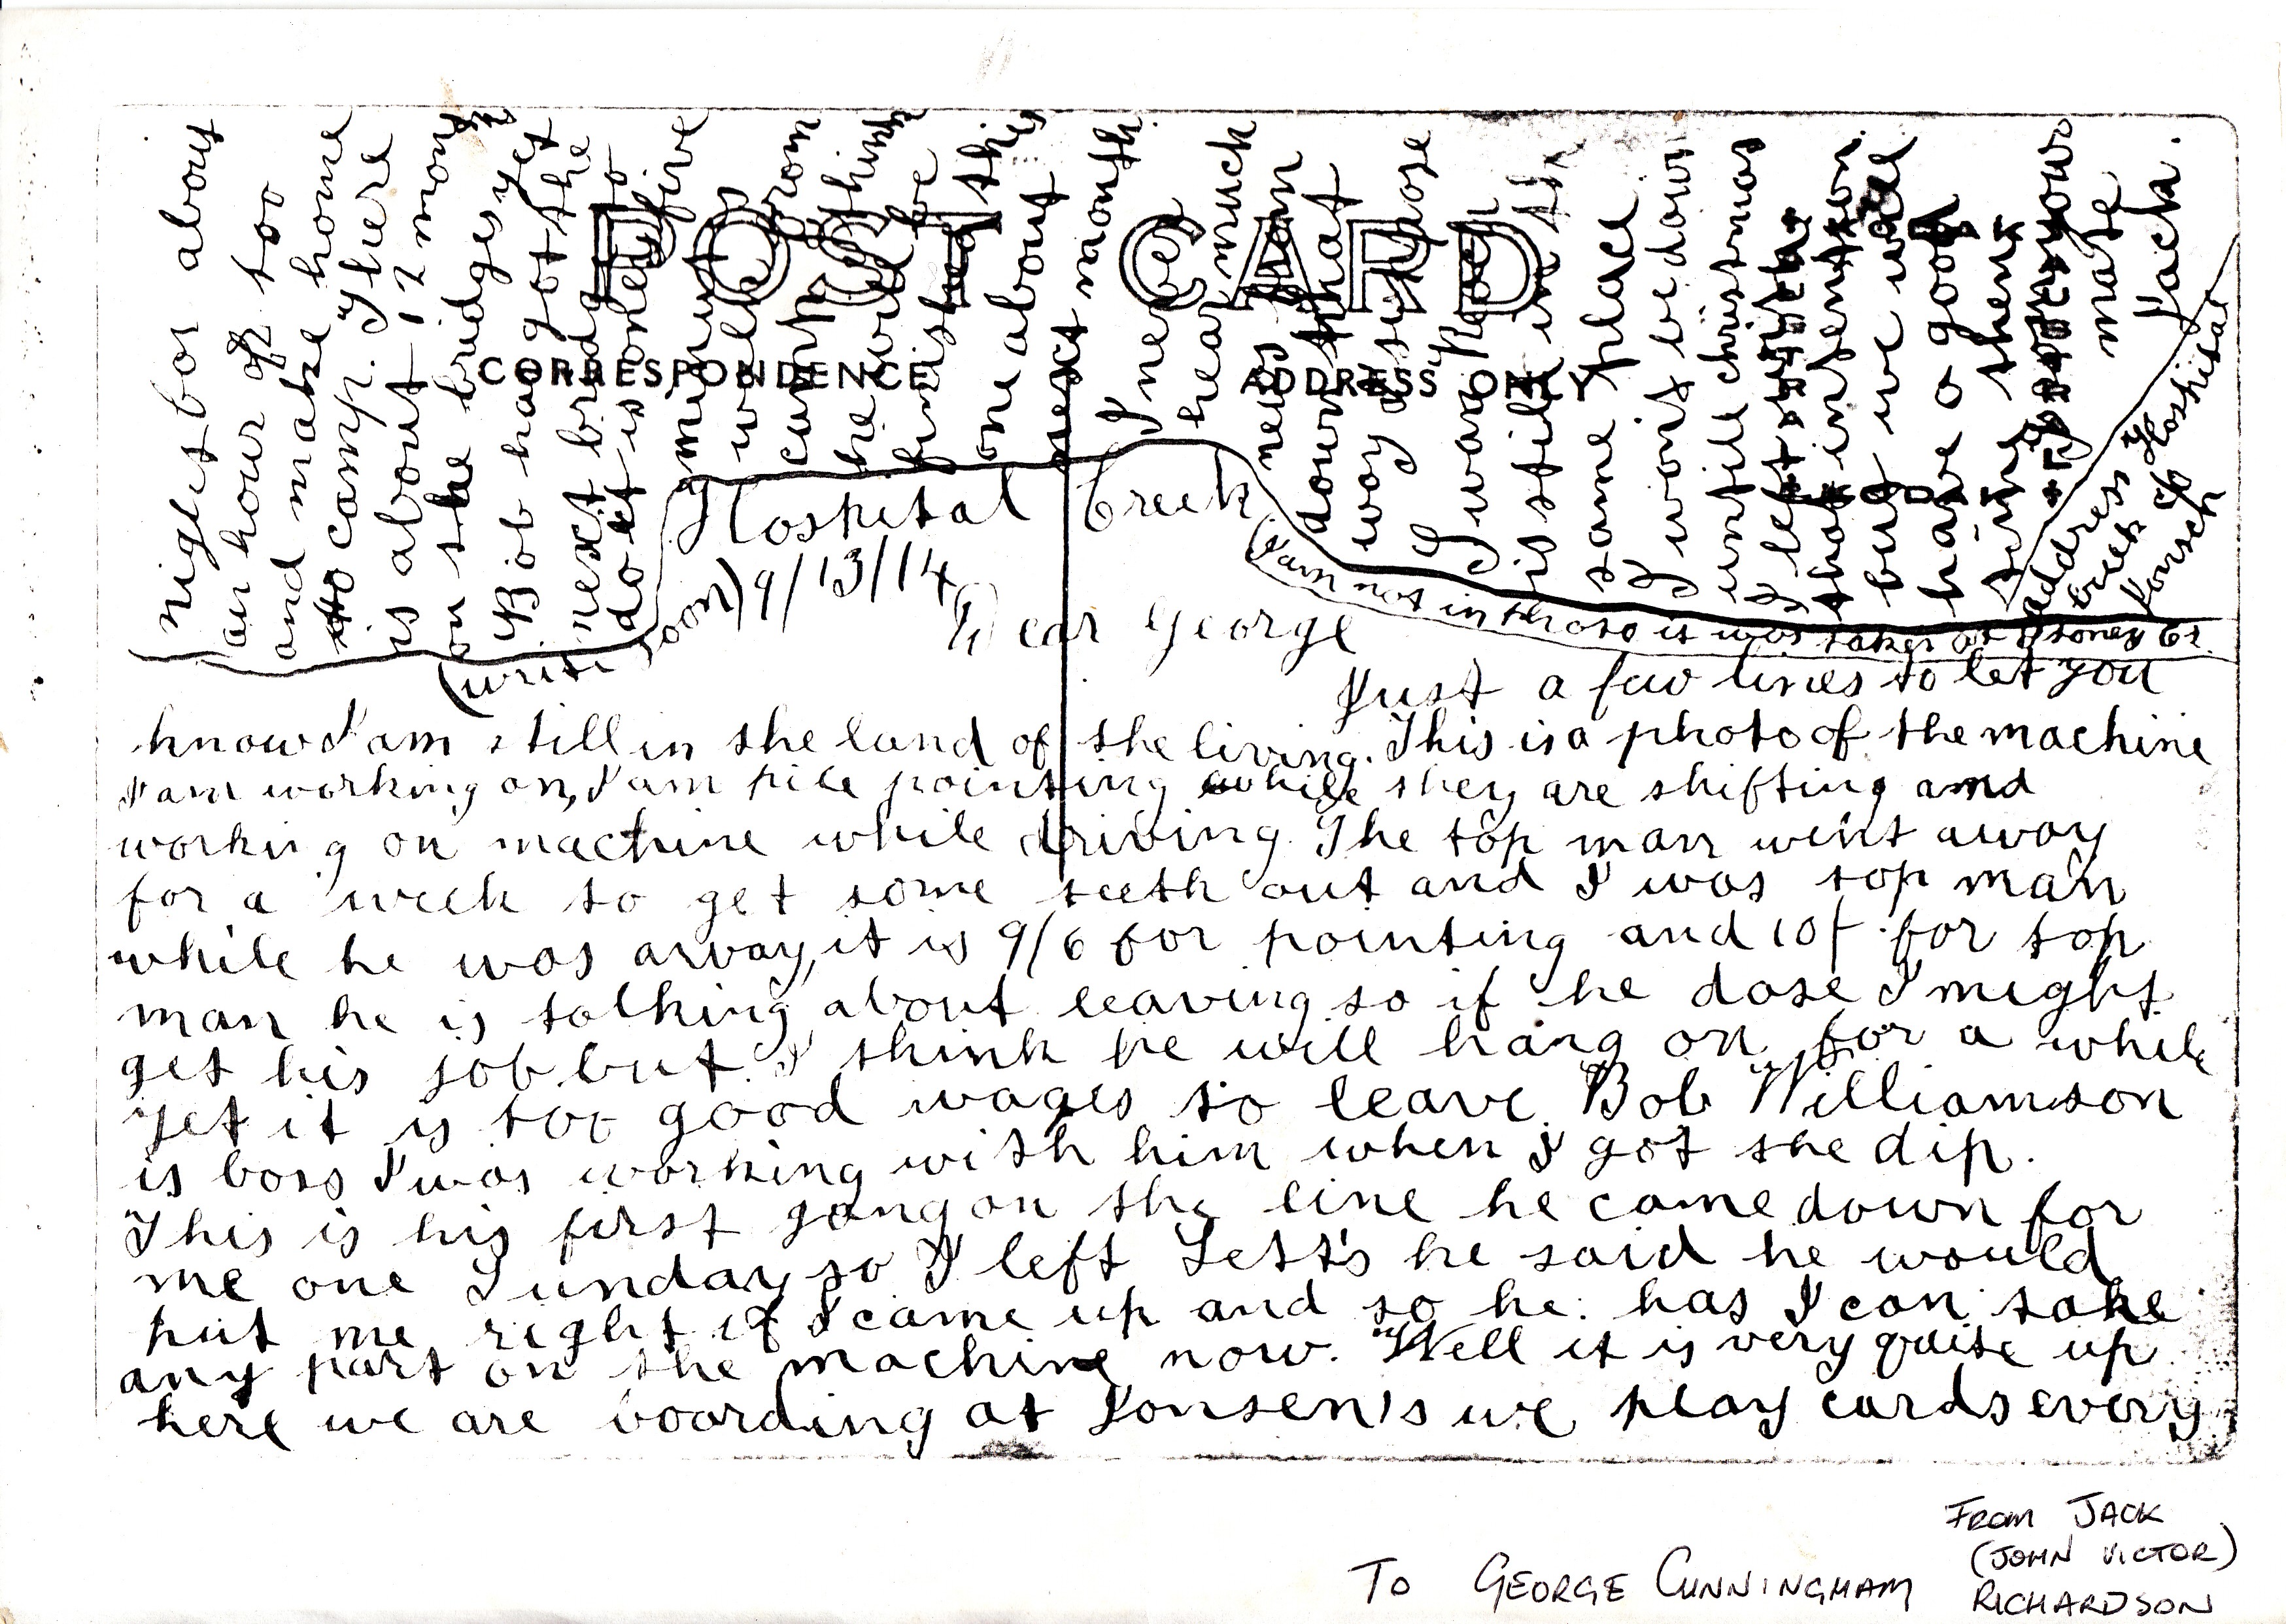 POST CARD
CORRESPONDENCE
ADDRESS ONLY
Hospital Creek
9/13/14
Dear George
Just a few lines to let you
know I am still in the land of the living. This is a photo of the machine
I am working on, I am pile pointing while they are shifting and
working on machine while driving. The top man went away
for a week to get some teeth out and I was top man
while he was away, it is 9/6 for pointing and 10/- for top
man he is talking about leaving so if he dose I might
get his job but I think he will hang on for a while
yet it is too good wages to leave. Bob Williamson
is boss I was working with him when I got the dip.
This is his first gang on the line he came down for
me one Sunday so I left Lett's he said he would
put me right if I came up and so he has I can take
any part on the machine now. Well it is very quite up
here we are boarding at Jonsen's we play cards every
night bor about
an hour or too
and make home
to camp. There
is about 12 month
on the bridges yet
Bob has got the
next bridge to
do it is only five
minutes
walk from
camp I think
he will be
finished this
one about
next month.
I never
hear much
news from
down that
way I supose
Iwan
is still in the
same place
I wont be down
untill christmas
I left
that
but we will
have a good
time then
I remain your
mate
Jack.
address Hospital
creek C/o
Jonsen
(write soon)
(I am not in photo it was taken at Stoney Cr.
TO GEORGE CUNNINGHAM
FROM JACK
(JOHN VICTOR)
RICHARDSON